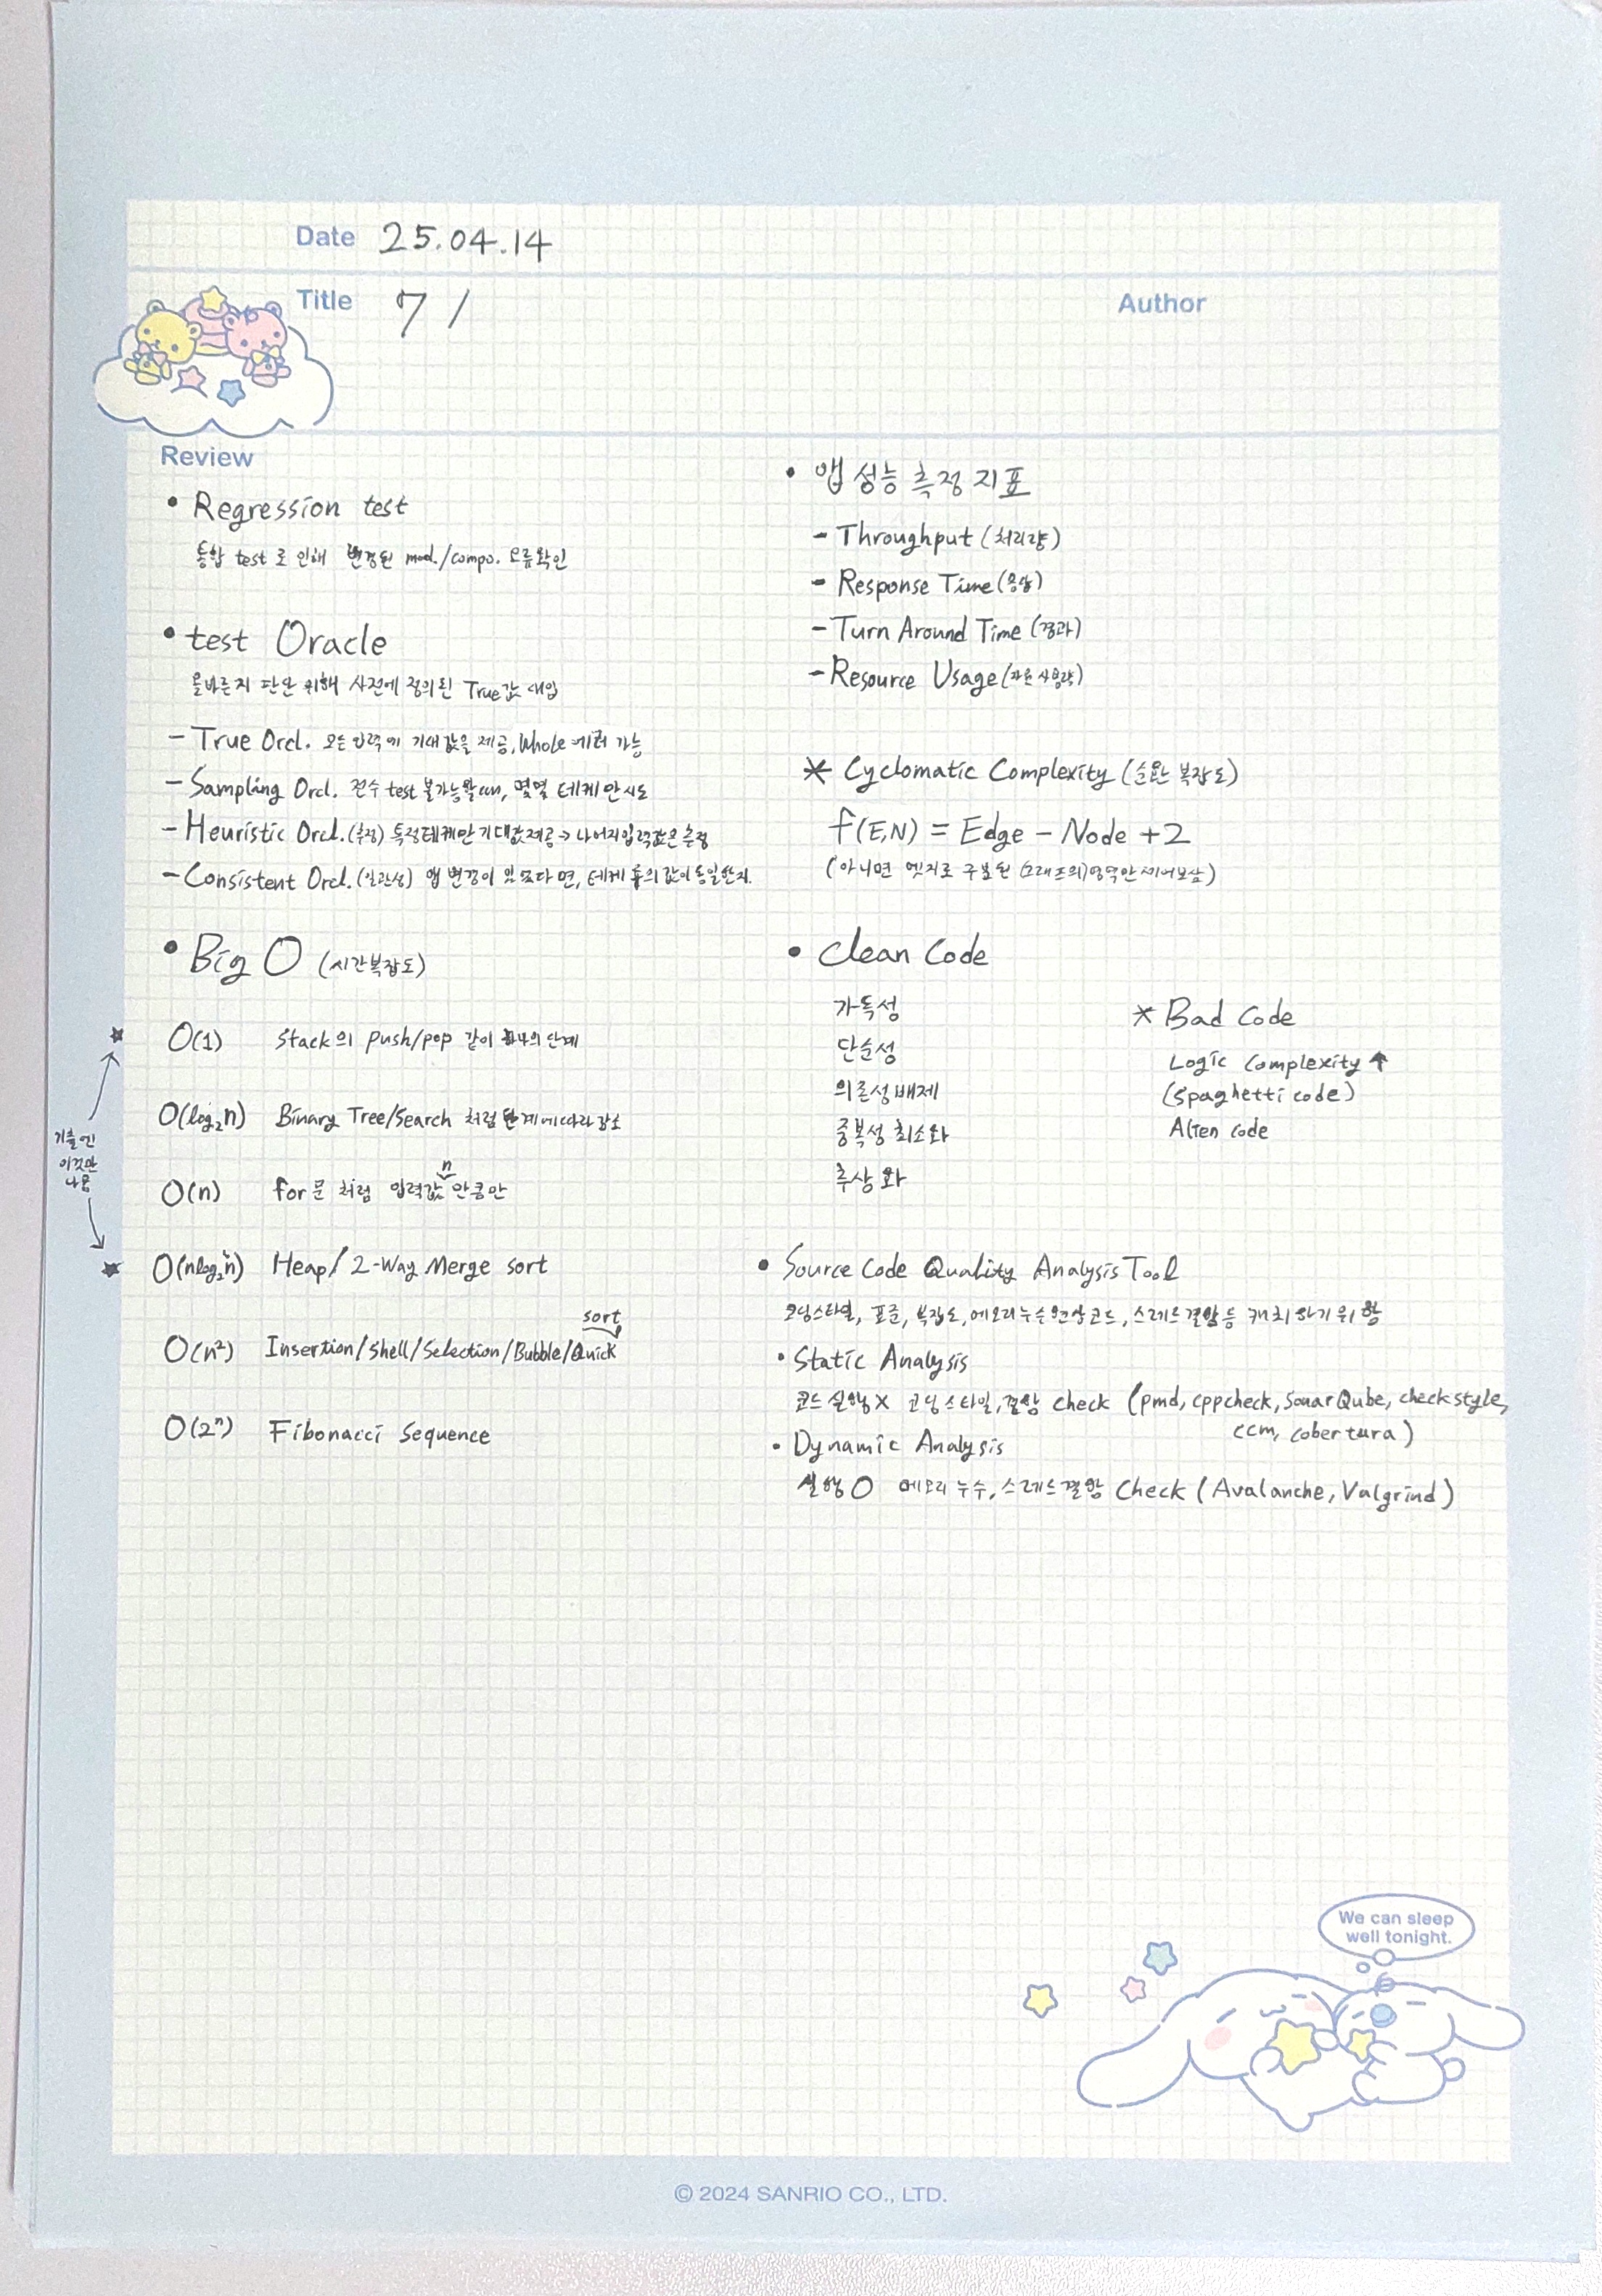 Date 25.04.14
Title 7 /
Author
Review
• Regression test
통합 test로 인해 변경된 mod./compo. 오류확인
• test Oracle
올바른지 판단 위해 사전에 정의된 True값 대입
- True Orcl. 모든 입력에 기대값을 제공, Whole 에러 가능
- Sampling Orcl. 전수 test 불가능할 때, 몇몇 테케만 시도
- Heuristic Orcl. (추정) 특정테케만 기대값제공 → 나머지입력값은 추정
- Consistent Orcl. (일관성) 앱 변경이 있었다면, 테케 의 값이 동일한지.
• Big O (시간복잡도)
★ O(1) Stack의 push/pop 같이 하나의 단계
O(log₂n) Binary Tree/Search 처럼 단계에따라 감소
기출엔
이것만
나옴
n
O(n) for문 처럼 입력값 만큼만
★ O(nlog₂n) Heap/2-Way Merge sort
sort
O(n²) Insertion/Shell/Selection/Bubble/Quick
O(2ⁿ) Fibonacci Sequence
• 앱 성능 측정 지표
- Throughput (처리량)
- Response Time (응답)
- Turn Around Time (경과)
- Resource Usage (자원 사용량)
* Cyclomatic Complexity (순환 복잡도)
f(E,N) = Edge - Node + 2
(아니면 엣지로 구분된 (그래프의)영역만 세어보삼)
• Clean Code
가독성
단순성
의존성 배제
중복성 최소화
추상화
* Bad Code
Logic Complexity ↑
(Spaghetti code)
Alien code
• Source Code Quality Analysis Tool
코딩스타일, 표준, 복잡도, 메모리누수현상코드, 스레드결함등 캐치하기위함
• Static Analysis
코드 실행 X 코딩 스타일, 결함 check (pmd, cppcheck, SonarQube, checkstyle,
ccm, cobertura)
• Dynamic Analysis
실행 O 메모리 누수, 스레드결함 Check (Avalanche, Valgrind)
We can sleep
well tonight.
© 2024 SANRIO CO., LTD.